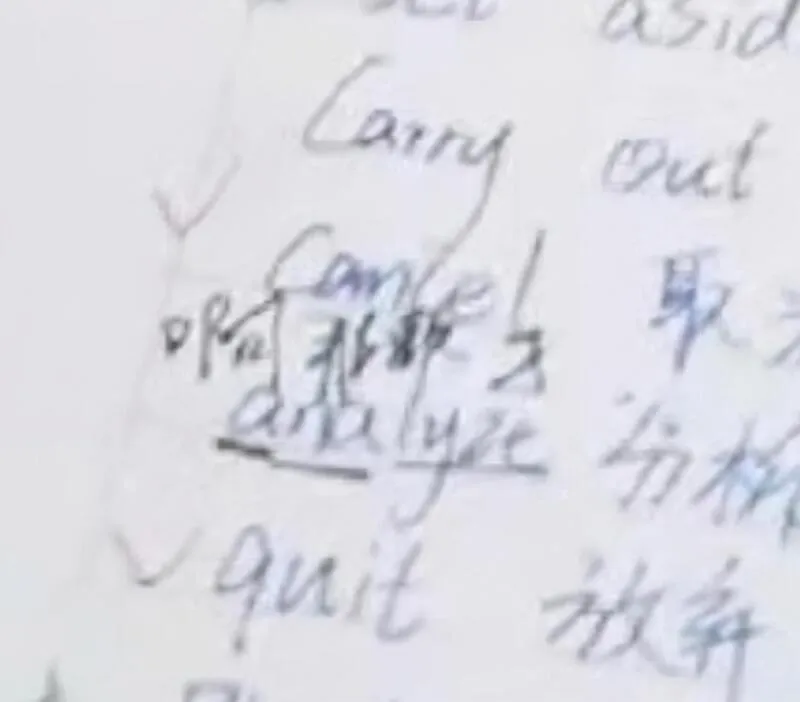 asid
Carry out
Cancel 取
analyze 分析
quit 放弃